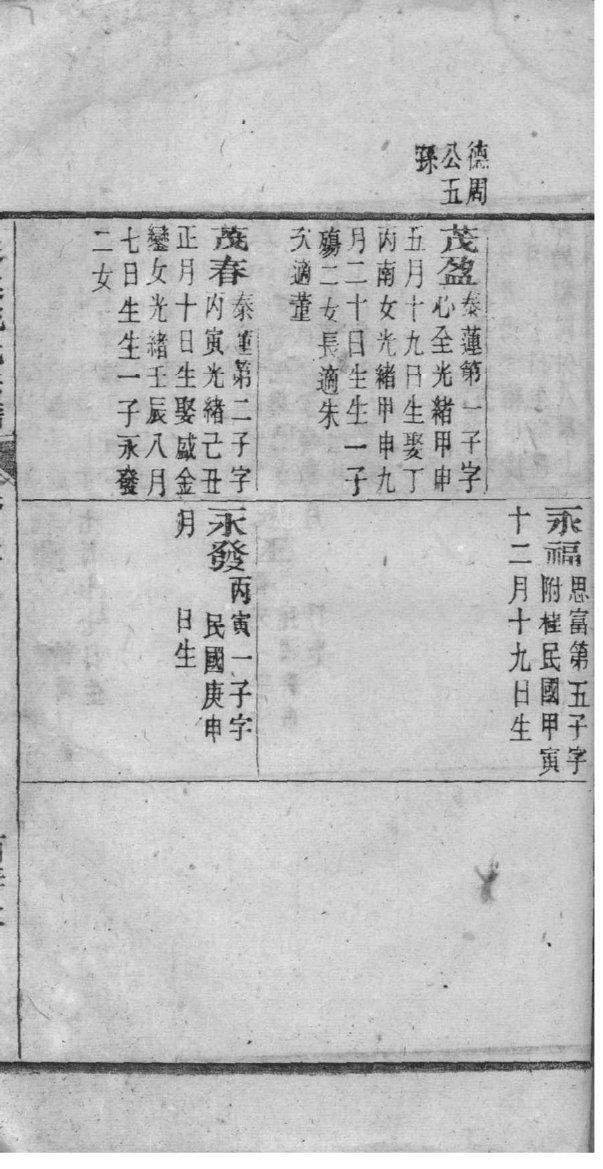 德周
公五
孫
茂盈
泰蓮第一子字
心全光緒甲申
五月十九日生娶丁
丙南女光緒甲申九
月二十日生生一子
殤二女長適朱
次適董
茂春
泰蓮第二子字
丙寅光緒己丑
正月十日生娶戚金
鑾女光緒壬辰八月
七日生生一子永發
二女
永福
思富第五子字
附桂民國甲寅
十二月十九日生
永發
丙寅一子字
民國庚申
月　日生